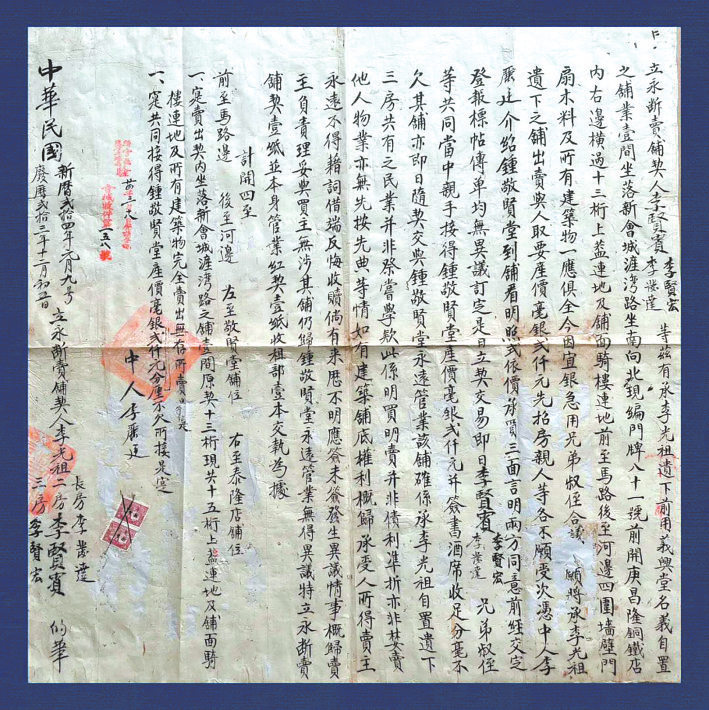 立永断賣舖契人李賢賓 李賢宏 李業達 等茲有承李光祖遺下前用義興堂名義自置
之舖業壹間坐落新會城漄灣路坐南向北現編門牌八十一號前開庚昌隆銅鐵店
内右邊橫過十三桁上盖連地及舖面騎樓連地前至馬路後至河邊四圍墻壁門
扇木料及所有建築物一應俱全今因宜銀急用兄弟叔侄合議願將承李光祖
遺下之舖出賣與人取要座價毫銀弍仟元先招房親人等各不願受次憑中人李
厲廷介紹鍾敬賢堂到舖看明照式依價承買三面言明兩方同意前經交定
登報標帖傳單均無異議訂定是日立契交易即日李賢賓 李賢宏 李業達 兄弟叔侄
等共同當中親手接得鍾敬賢堂座價毫銀弍仟元并簽書酒席收足分毫不
欠其舖亦即日隨契交與鍾敬賢堂永遠管業該舖確係承李光祖自置遺下
三房共有之民業并非祭嘗學款此係明買明賣并非債利準折亦非
他人物業亦無先按先典等情如有建築舖底權利概歸承受人所得賣主
永遠不得藉詞借端反悔收贖倘有来歴不明應簽未簽發生異議情事概歸賣
主自責理妥與買主無涉其舖仍歸鍾敬賢堂永遠管業無得異議特立永断賣
舖契壹紙並本身管業紅契壹紙收租部壹本交執為據
計開四至
前至馬路邊 後至河邊 左至敬賢堂舖位 右至泰隆店舖位
一寔賣出契内坐落新會城漄灣路之舖壹間原契十三桁現共十五桁上盖連地及舖面騎
樓連地及所有建築物完全賣出無存所賣是寔
一、寔共同接得鍾敬賢堂座價毫銀弍仟元分厘不欠所接是寔
中人李厲廷
中華民國 新曆弍拾四年元月九号 廢曆弍拾三年十二月初五日 立永断賣舖契人李光祖 長房李業達 二房李賢賓 三房李賢宏 的筆